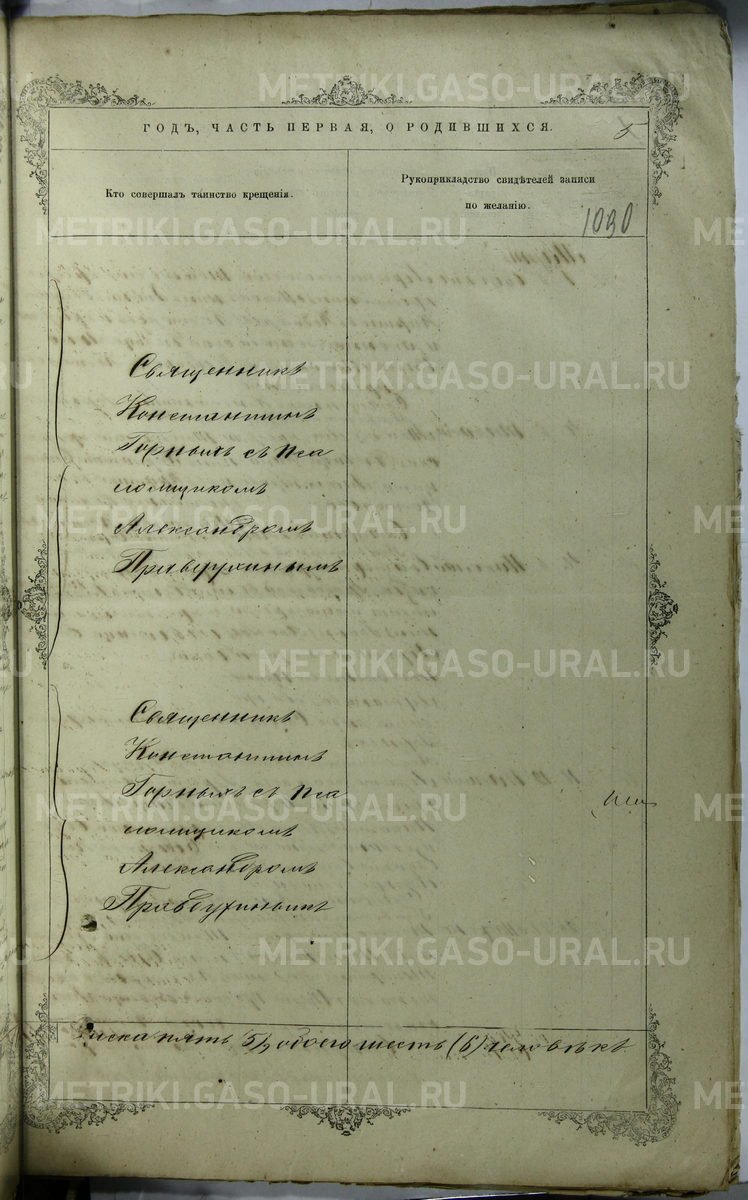 METRIKI.GASO-URAL.RU
ГОДЪ, ЧАСТЬ ПЕРВАЯ, О РОДИВШИХСЯ.
5
Кто совершалъ таинство крещенія.
Рукоприкладство свидѣтелей записи
по желанію.
1030
Священникъ
Константинъ
Горныхъ съ Пса
ломщикомъ
Александромъ
Правдухинымъ
Священникъ
Константинъ
Горныхъ съ Пса
ломщикомъ
Александромъ
Правдухинымъ
пять (5), обоего шесть (6) человѣкъ